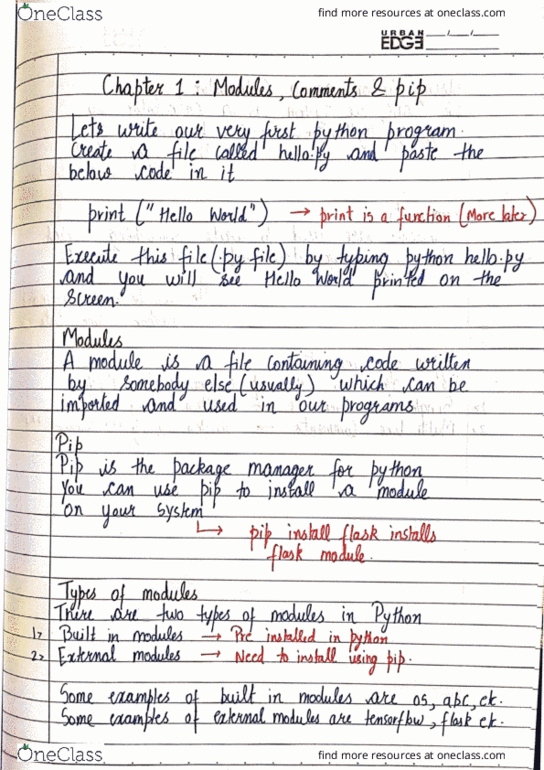 OneClass
find more resources at oneclass.com
URBAN
EDGE
Chapter 1 : Modules, Comments & pip
Lets write our very first python program.
Create a file called hello.py and paste the
below code in it
print ("Hello World") → print is a function (More later)
Execute this file (.py file) by typing python hello.py
and you will see Hello World printed on the
Screen.
Modules
A module is a file containing code written
by somebody else (usually) which can be
imported and used in our programs
Pip
Pip is the package manager for python
You can use pip to install a module
on your system
↳ pip install flask installs
flask module.
Types of modules
There are two types of modules in Python
1> Built in modules → Pre installed in python
2> External modules → Need to install using pip.
Some examples of built in modules are os, abc, etc.
Some examples of external modules are tensorflow, flask etc.
OneClass
find more resources at oneclass.com